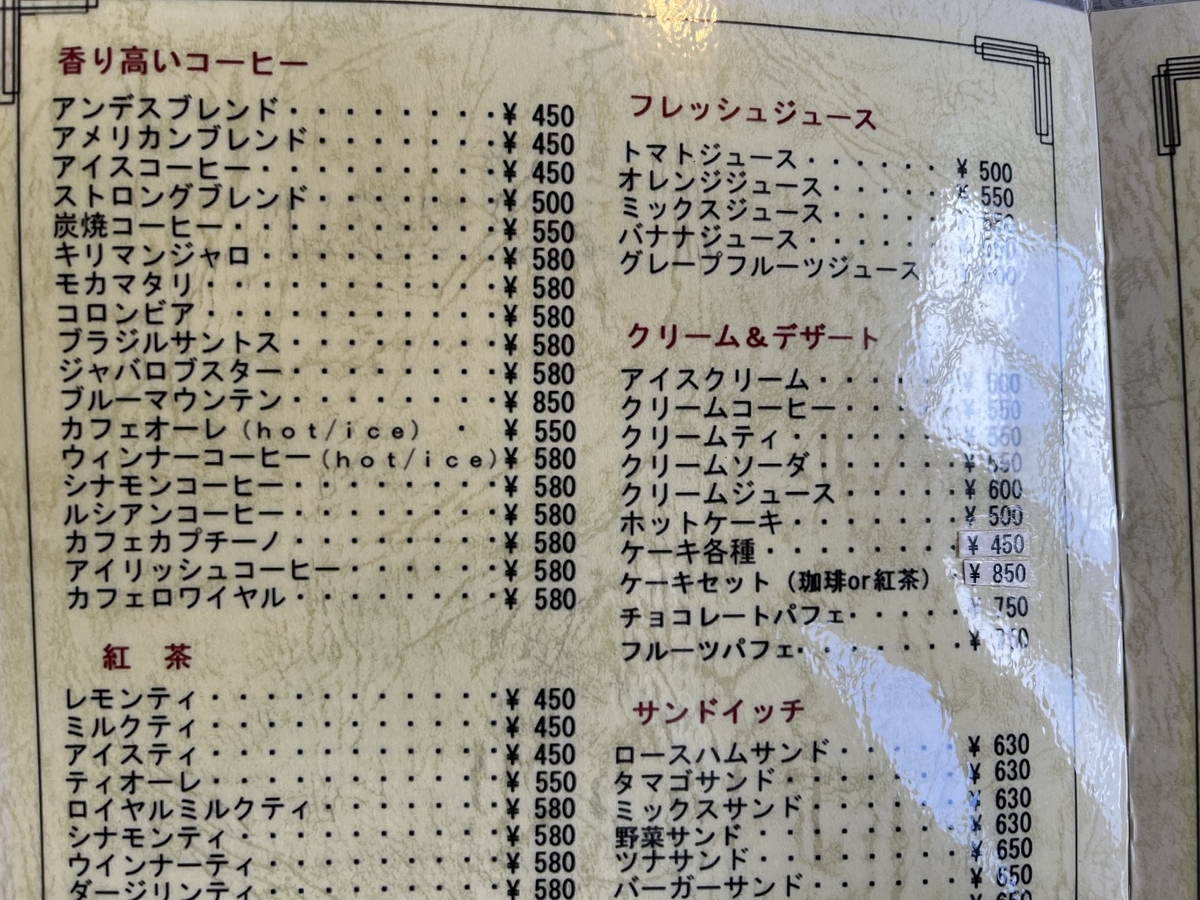 香り高いコーヒー
アンデスブレンド・・・・・・・・¥ 450
アメリカンブレンド・・・・・・・¥ 450
アイスコーヒー・・・・・・・・・¥ 450
ストロングブレンド・・・・・・・¥ 500
炭焼コーヒー・・・・・・・・・・¥ 550
キリマンジャロ・・・・・・・・・¥ 580
モカマタリ・・・・・・・・・・・¥ 580
コロンビア・・・・・・・・・・・¥ 580
ブラジルサントス・・・・・・・・¥ 580
ジャバロブスター・・・・・・・・¥ 580
ブルーマウンテン・・・・・・・・¥ 850
カフェオーレ(hot/ice) ・ ¥ 550
ウィンナーコーヒー(hot/ice)¥ 580
シナモンコーヒー・・・・・・・・¥ 580
ルシアンコーヒー・・・・・・・・¥ 580
カフェカプチーノ・・・・・・・・¥ 580
アイリッシュコーヒー・・・・・・¥ 580
カフェロワイヤル・・・・・・・・¥ 580
紅 茶
レモンティ・・・・・・・・・・・¥ 450
ミルクティ・・・・・・・・・・・¥ 450
アイスティ・・・・・・・・・・・¥ 450
ティオーレ・・・・・・・・・・・¥ 550
ロイヤルミルクティ・・・・・・・¥ 580
シナモンティ・・・・・・・・・・¥ 580
ウインナーティ・・・・・・・・・¥ 580
ダージリンティ・・・・・・・・・¥ 580
フレッシュジュース
トマトジュース・・・・・・¥ 500
オレンジジュース・・・・・¥ 550
ミックスジュース・・・・・
バナナジュース・・・・・
グレープフルーツジュース
クリーム&デザート
アイスクリーム・・・・・¥
クリームコーヒー・・・・¥ 550
クリームティ・・・・・・¥ 550
クリームソーダ・・・・・¥ 550
クリームジュース・・・・・¥ 600
ホットケーキ・・・・・・・¥ 500
ケーキ各種・・・・・・・・¥ 450
ケーキセット(珈琲or紅茶)・¥ 850
チョコレートパフェ・・・・・¥ 750
フルーツパフェ・・・・・・・¥
サンドイッチ
ロースハムサンド・・・・・¥ 630
タマゴサンド・・・・・・・¥ 630
ミックスサンド・・・・・・¥ 630
野菜サンド・・・・・・・・¥ 630
ツナサンド・・・・・・・・¥ 650
バーガーサンド・・・・・・¥ 650